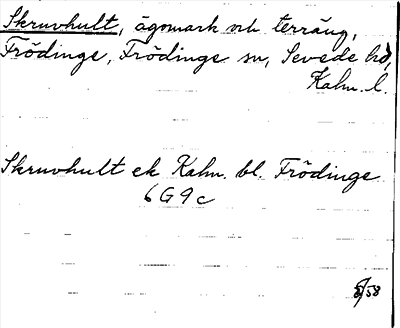 Skruvhult, ägomark och terräng,
Frödinge, Frödinge sn, Sevede hd,
Kalm. l.
Skruvhult ek Kalm. bl. Frödinge
6G9c
58